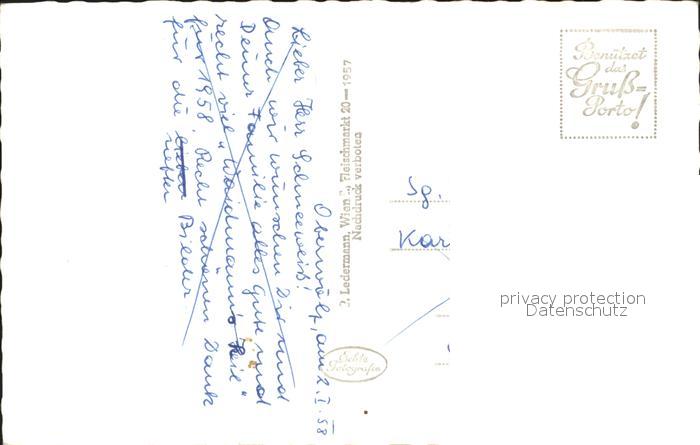 Oberwölz, am 2. I. 58
Lieber Herr Schneeweiß!
Auch wir wünschen Dir und
Deiner Familie alles Gute und
recht viel "Waidmanns Heil"
für 1958. Recht schönen Dank
für die lieben netten Bilder
P. Ledermann, Wien I., Fleischmarkt 20—1957
Nachdruck verboten
Echte
Fotografie
Benützet
das
Gruß-
Porto!
Kar
privacy protection
Datenschutz